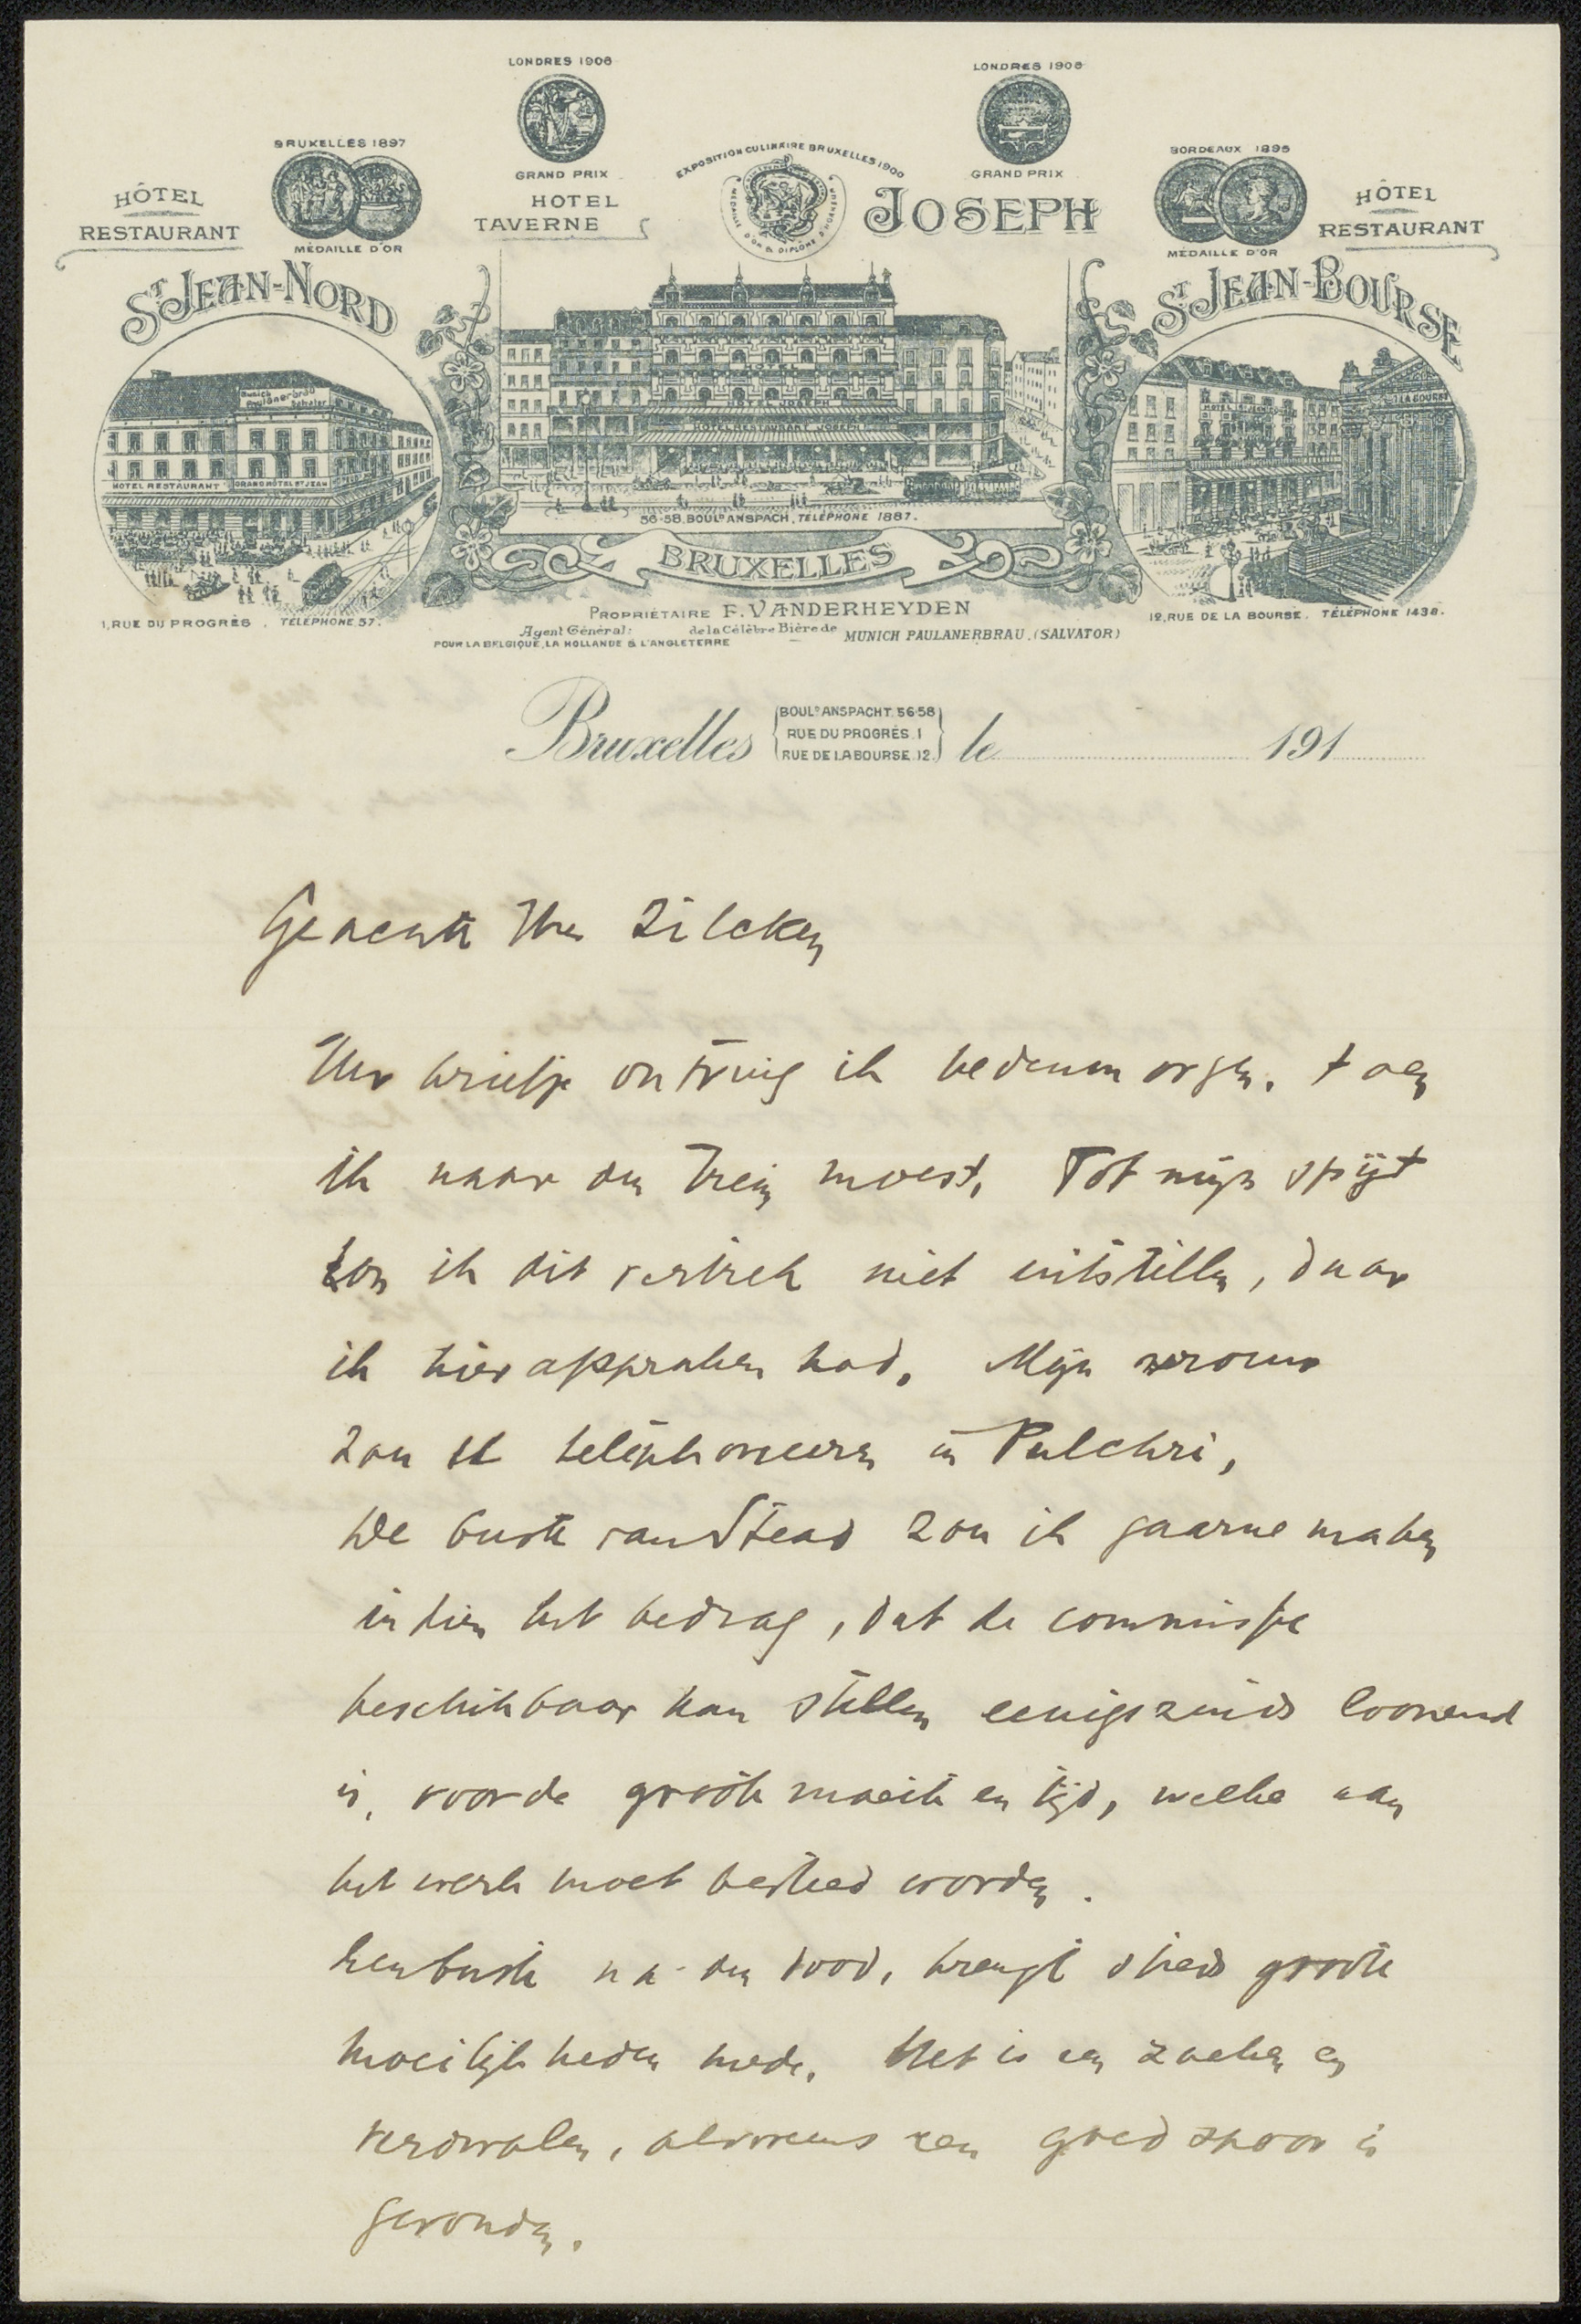 LONDRES 1906
LONDRES 1906
BRUXELLES 1897
GRAND PRIX
EXPOSITION CULINAIRE BRUXELLES 1900
GRAND PRIX
BORDEAUX 1895
HÔTEL
RESTAURANT
MÉDAILLE D'OR
HOTEL
TAVERNE
MEDAILLE D'OR & DIPLÔME D'HONNEUR
JOSEPH
MÉDAILLE D'OR
HÔTEL
RESTAURANT
ST JEAN-NORD
ST JEAN-BOURSE
Munich
Paulanerbräu
HOTEL RESTAURANT GRAND HÔTEL ST JEAN
HOTEL JOSEPH
HOTEL RESTAURANT JOSEPH
LA BOURSE
56-58, BOULD ANSPACH, TÉLÉPHONE 1887.
BRUXELLES
1, RUE DU PROGRÈS. TÉLÉPHONE 57.
PROPRIÉTAIRE F. VANDERHEYDEN
12, RUE DE LA BOURSE. TÉLÉPHONE 1438.
Agent Général: de la Célèbre Bière de MUNICH PAULANERBRAU. (SALVATOR)
POUR LA BELGIQUE, LA HOLLANDE & L'ANGLETERRE
Bruxelles BOULD ANSPACHT. 56-58 le 191
RUE DU PROGRÈS. 1
RUE DE LA BOURSE. 12.
Geachte Hr Zilcken
Uw briefje ontving ik hedenmorgen, toen
ik naar den trein moest. Tot mijn spijt
kon ik dit vertrek niet uitstellen, daar
ik hier afspraken had. Mijn vrouw
zou U telephoneeren in Pulchri,
De buste van Stead zou ik gaarne maken
indien het bedrag, dat de commissie
beschikbaar kan stellen eenigszinds loonend
is, voor de groote moeite en tijd, welke aan
het werk moet besteed worden.
Een buste na den dood, brengt steeds groote
moeilijkheden mede. Het is een zoeken en
verdwalen, alvorens een goed spoor is
gevonden.